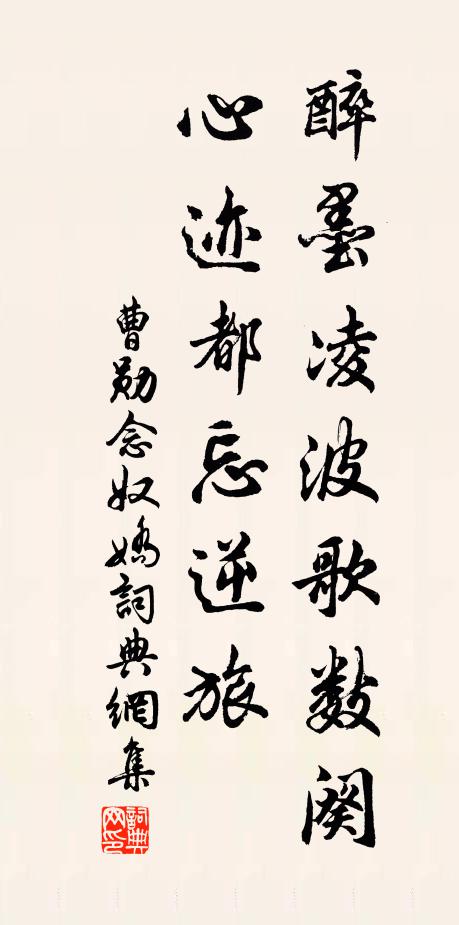 醉墨凌波歌数阕
心迹都忘逆旅
曹勋念奴嬌詞典網集
詞典网印